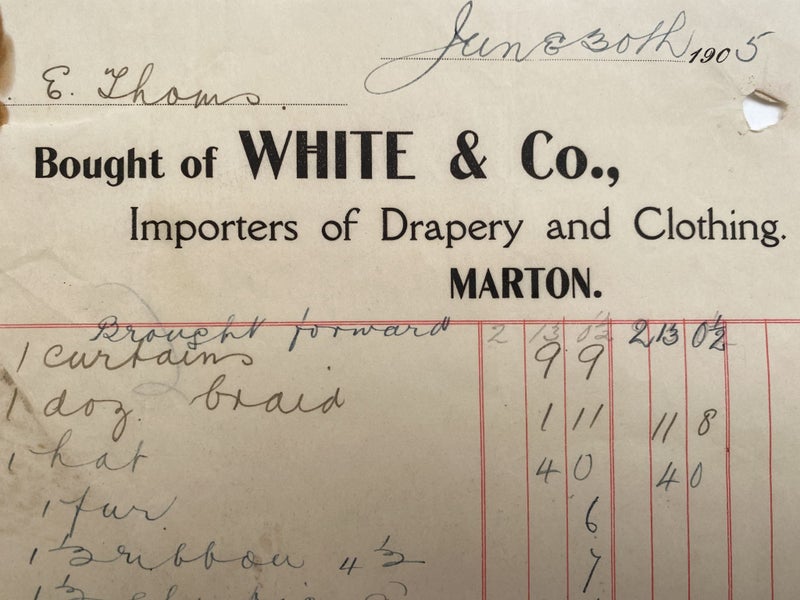 June 30th 1905
E. Thoms.
Bought of WHITE & Co.,
Importers of Drapery and Clothing.
MARTON.
Brought forward 2 13 0½ 2 13 0½
1 curtains 9 9
1 doz. braid 1 11 11 8
1 hat 4 0 4 0
1 fur 6
1½ ribbon 4½ 7
1½